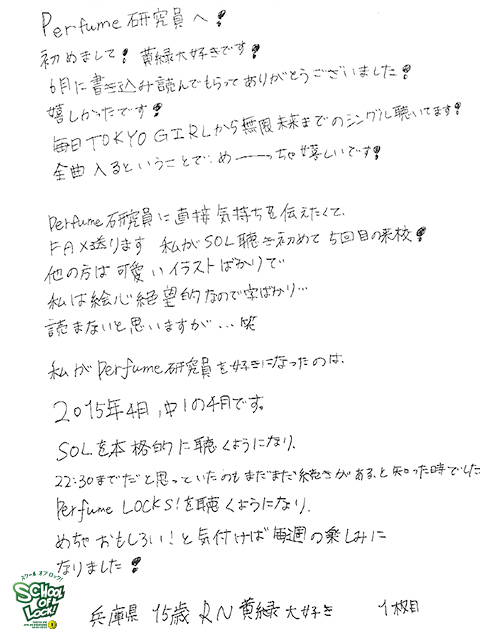 Perfume研究員へ!
初めまして! 黄緑大好きです!
6月に書き込み読んでもらってありがとうございました!
嬉しかったです!
毎日TOKYO GIRLから無限未来までのシングル聴いてます!
全曲入るということで、めーーっちゃ嬉しいです!
Perfume研究員に直接気持ちを伝えたくて、
FAX送ります 私がSOL聴き初めて5回目の来校!
他の方は可愛いイラストばかりで
私は絵心絶望的なので字ばかり…
読まないと思いますが…笑
私がPerfume研究員を好きになったのは、
2015年4月,中1の4月です。
SOLを本格的に聴くようになり、
22:30までだと思っていたのもまだまだ続きがある、と知った時でした
Perfume LOCKS!を聴くようになり、
めちゃおもしろい!と気付けば毎週の楽しみに
なりました!
スクール オブ ロック!
SCHOOL OF LOCK!
兵庫県 15歳 RN 黄緑大好き 1枚目